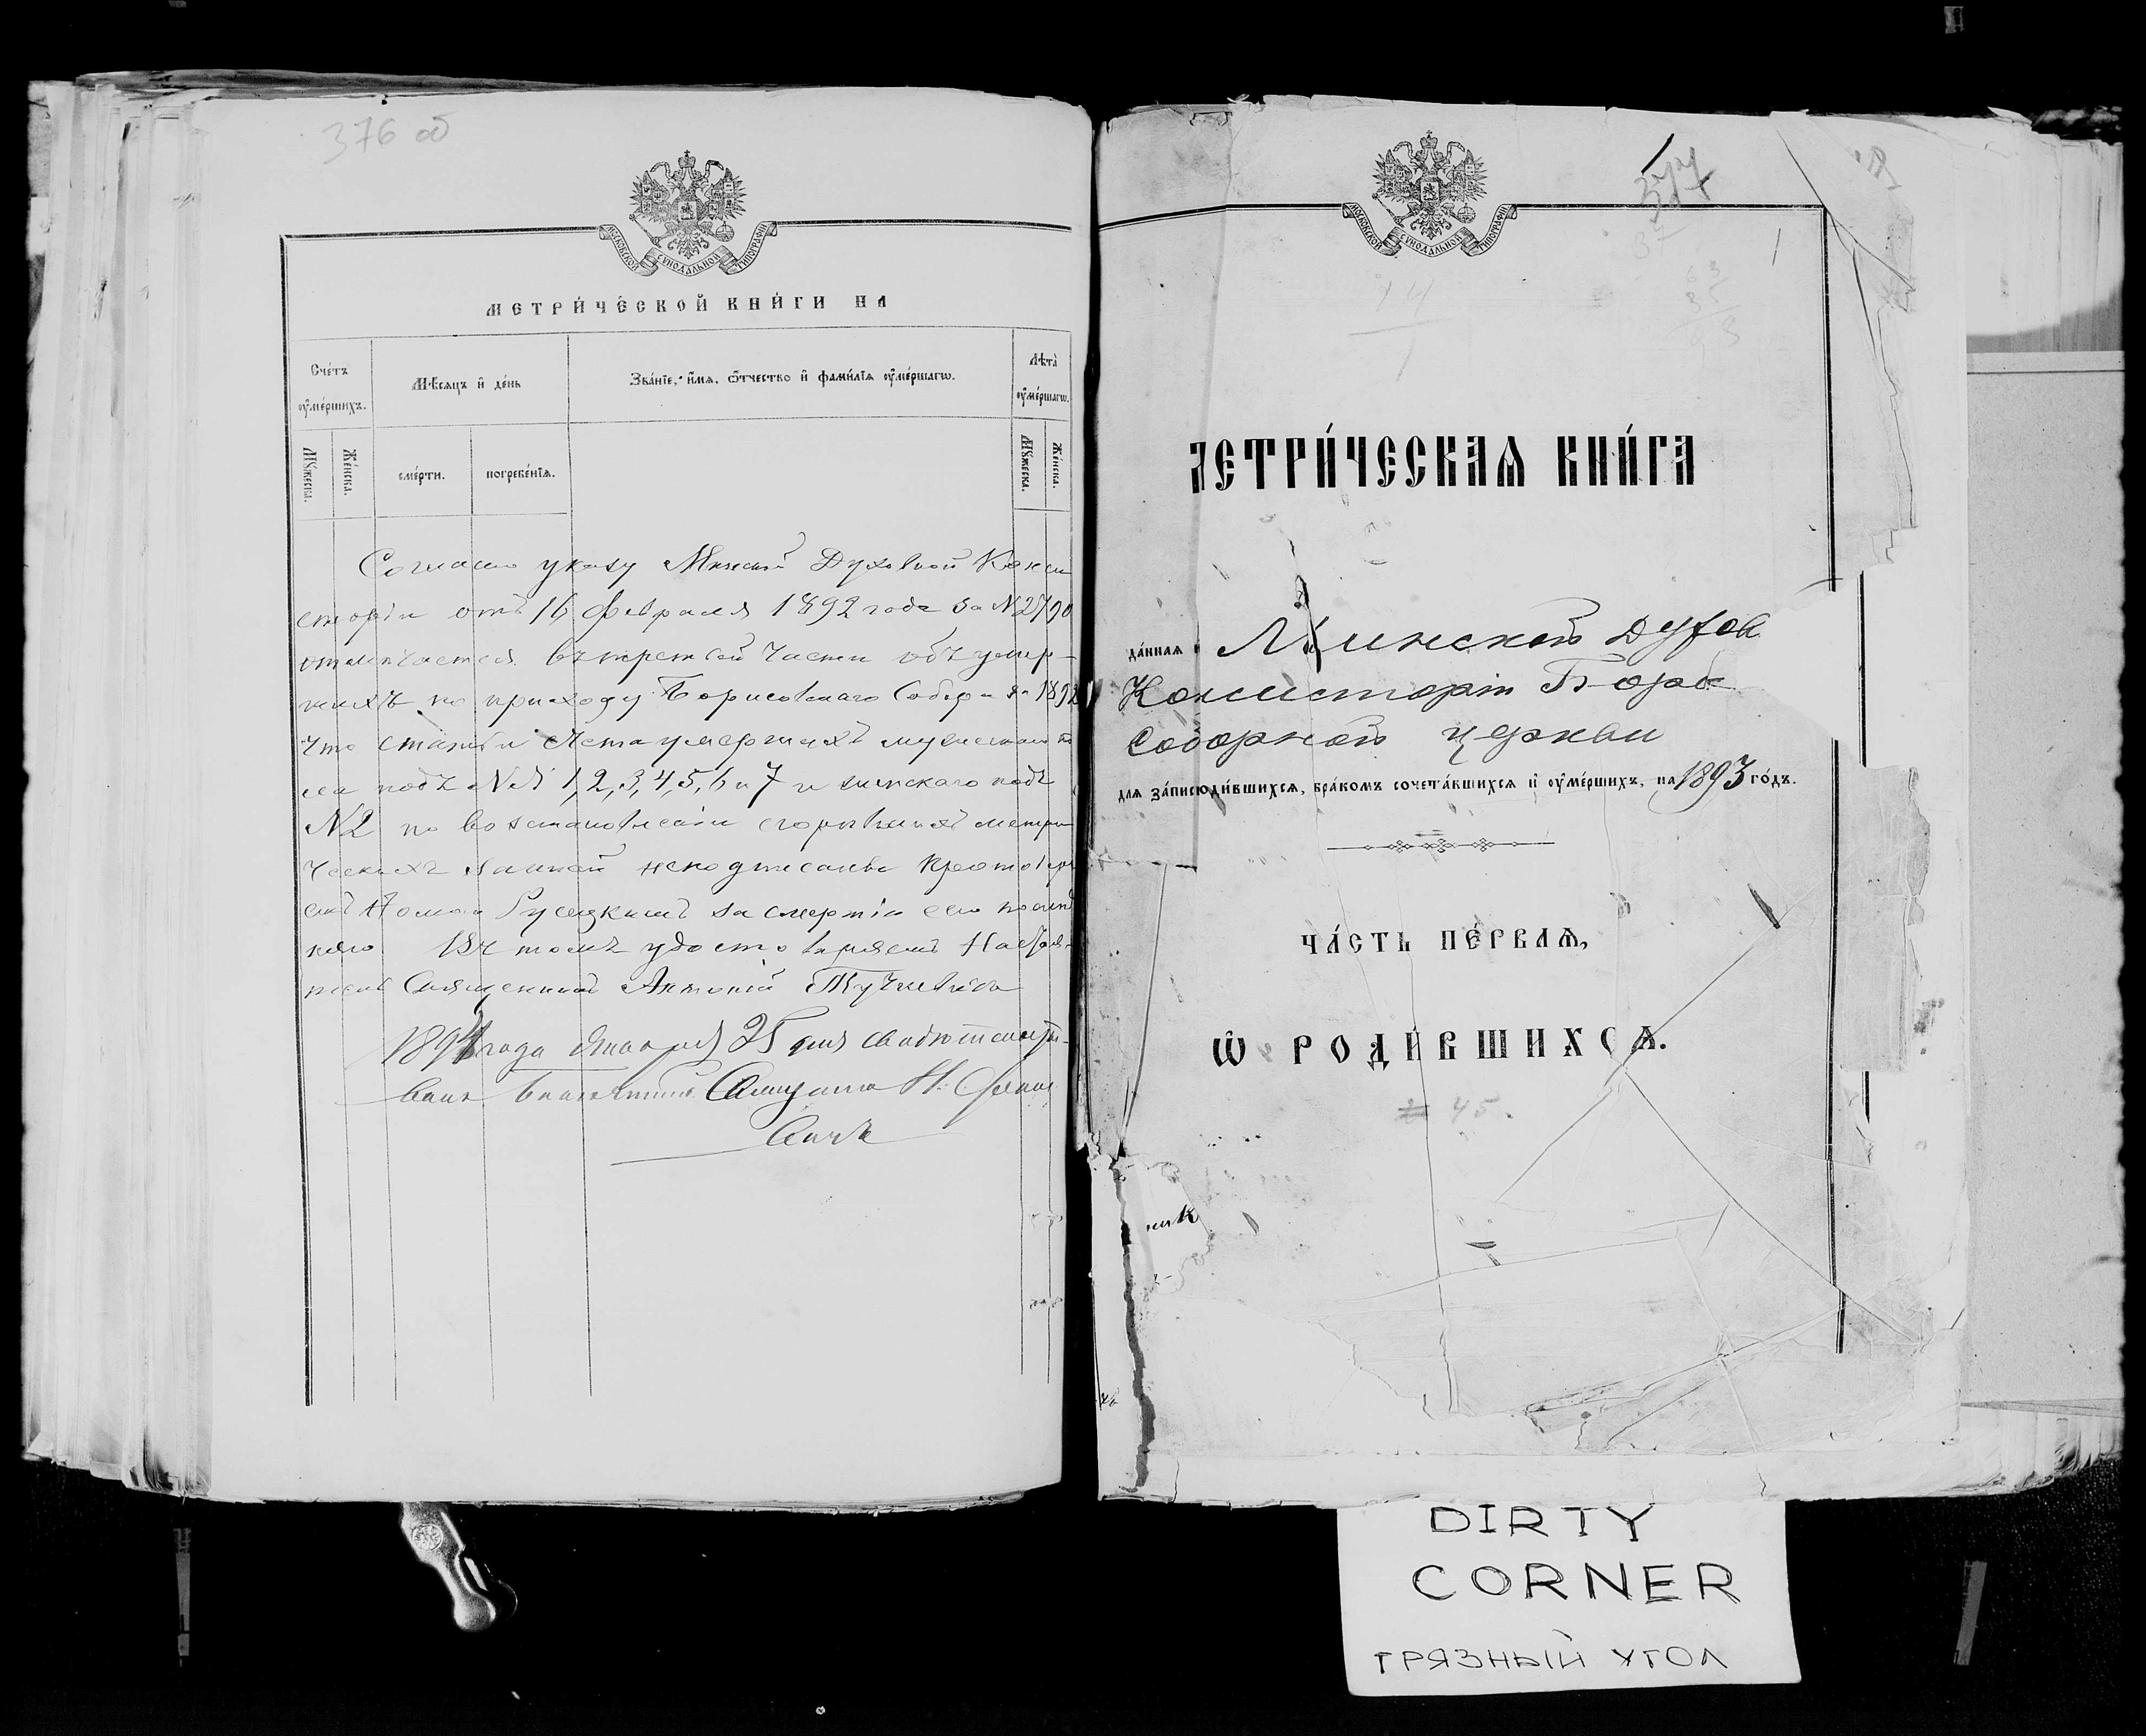 376 об
МОСКОВСКОЙ СУНОДАЛЬНОЙ ТИПОГРАФІИ
МЕТРИ́ЧЕСКОЙ КНИ́ГИ НА
Сче́тъ ᲂу҆ме́ршихъ.
Мѣ́сѧцъ и҆ де́нь
Зва́нїе, и҆́мѧ, ѻ҆́тчество и҆ фами́лїѧ ᲂу҆ме́ршагѡ.
Лѣ́та ᲂу҆ме́ршагѡ.
Мꙋ́жеска.
Же́нска.
сме́рти.
погребе́нїѧ.
Мꙋ́жеска.
Же́нска.
Согласно указу Минской Духовной Конси
сторіи отъ 16 февраля 1892 года за №2790
отмѣчается въ третьей части объ умер-
шихъ по приходу Борисовскаго Собора за 1892
что статьи счета умершихъ мужескаго по
ла подъ №№ 1, 2, 3, 4, 5, 6 и 7 и женскаго подъ
№2 по возстановленіи сгорѣвшихъ метри
ческихъ записей неподписаны Протоіере
емъ Фомою Русецкимъ за смертію его послѣд
няго. Въ томъ удостовѣряемъ Настоя-
тель Священникъ Антоній
1894 года Января 25 дня свидѣтельство-
валъ Благочинный Священникъ Н.
МОСКОВСКОЙ СУНОДАЛЬНОЙ ТИПОГРАФІИ
377
1
ЛЕТРИ́ЧЕСКАѦ КНИ́ГА
да́ннаѧ и Минской Духов
Консисторіи Бори
Соборной церкви
длѧ за́писи роди́вшихсѧ, бра́комъ сочета́вшихсѧ и҆ ᲂу҆ме́ршихъ, на 1893 го́дъ.
ЧА́СТЬ ПЕ́РВАѦ,
Ѡ҆ РОДИ́ВШИХСѦ.
45.
ник
DIRTY
CORNER
ГРЯЗНЫЙ УГОЛ